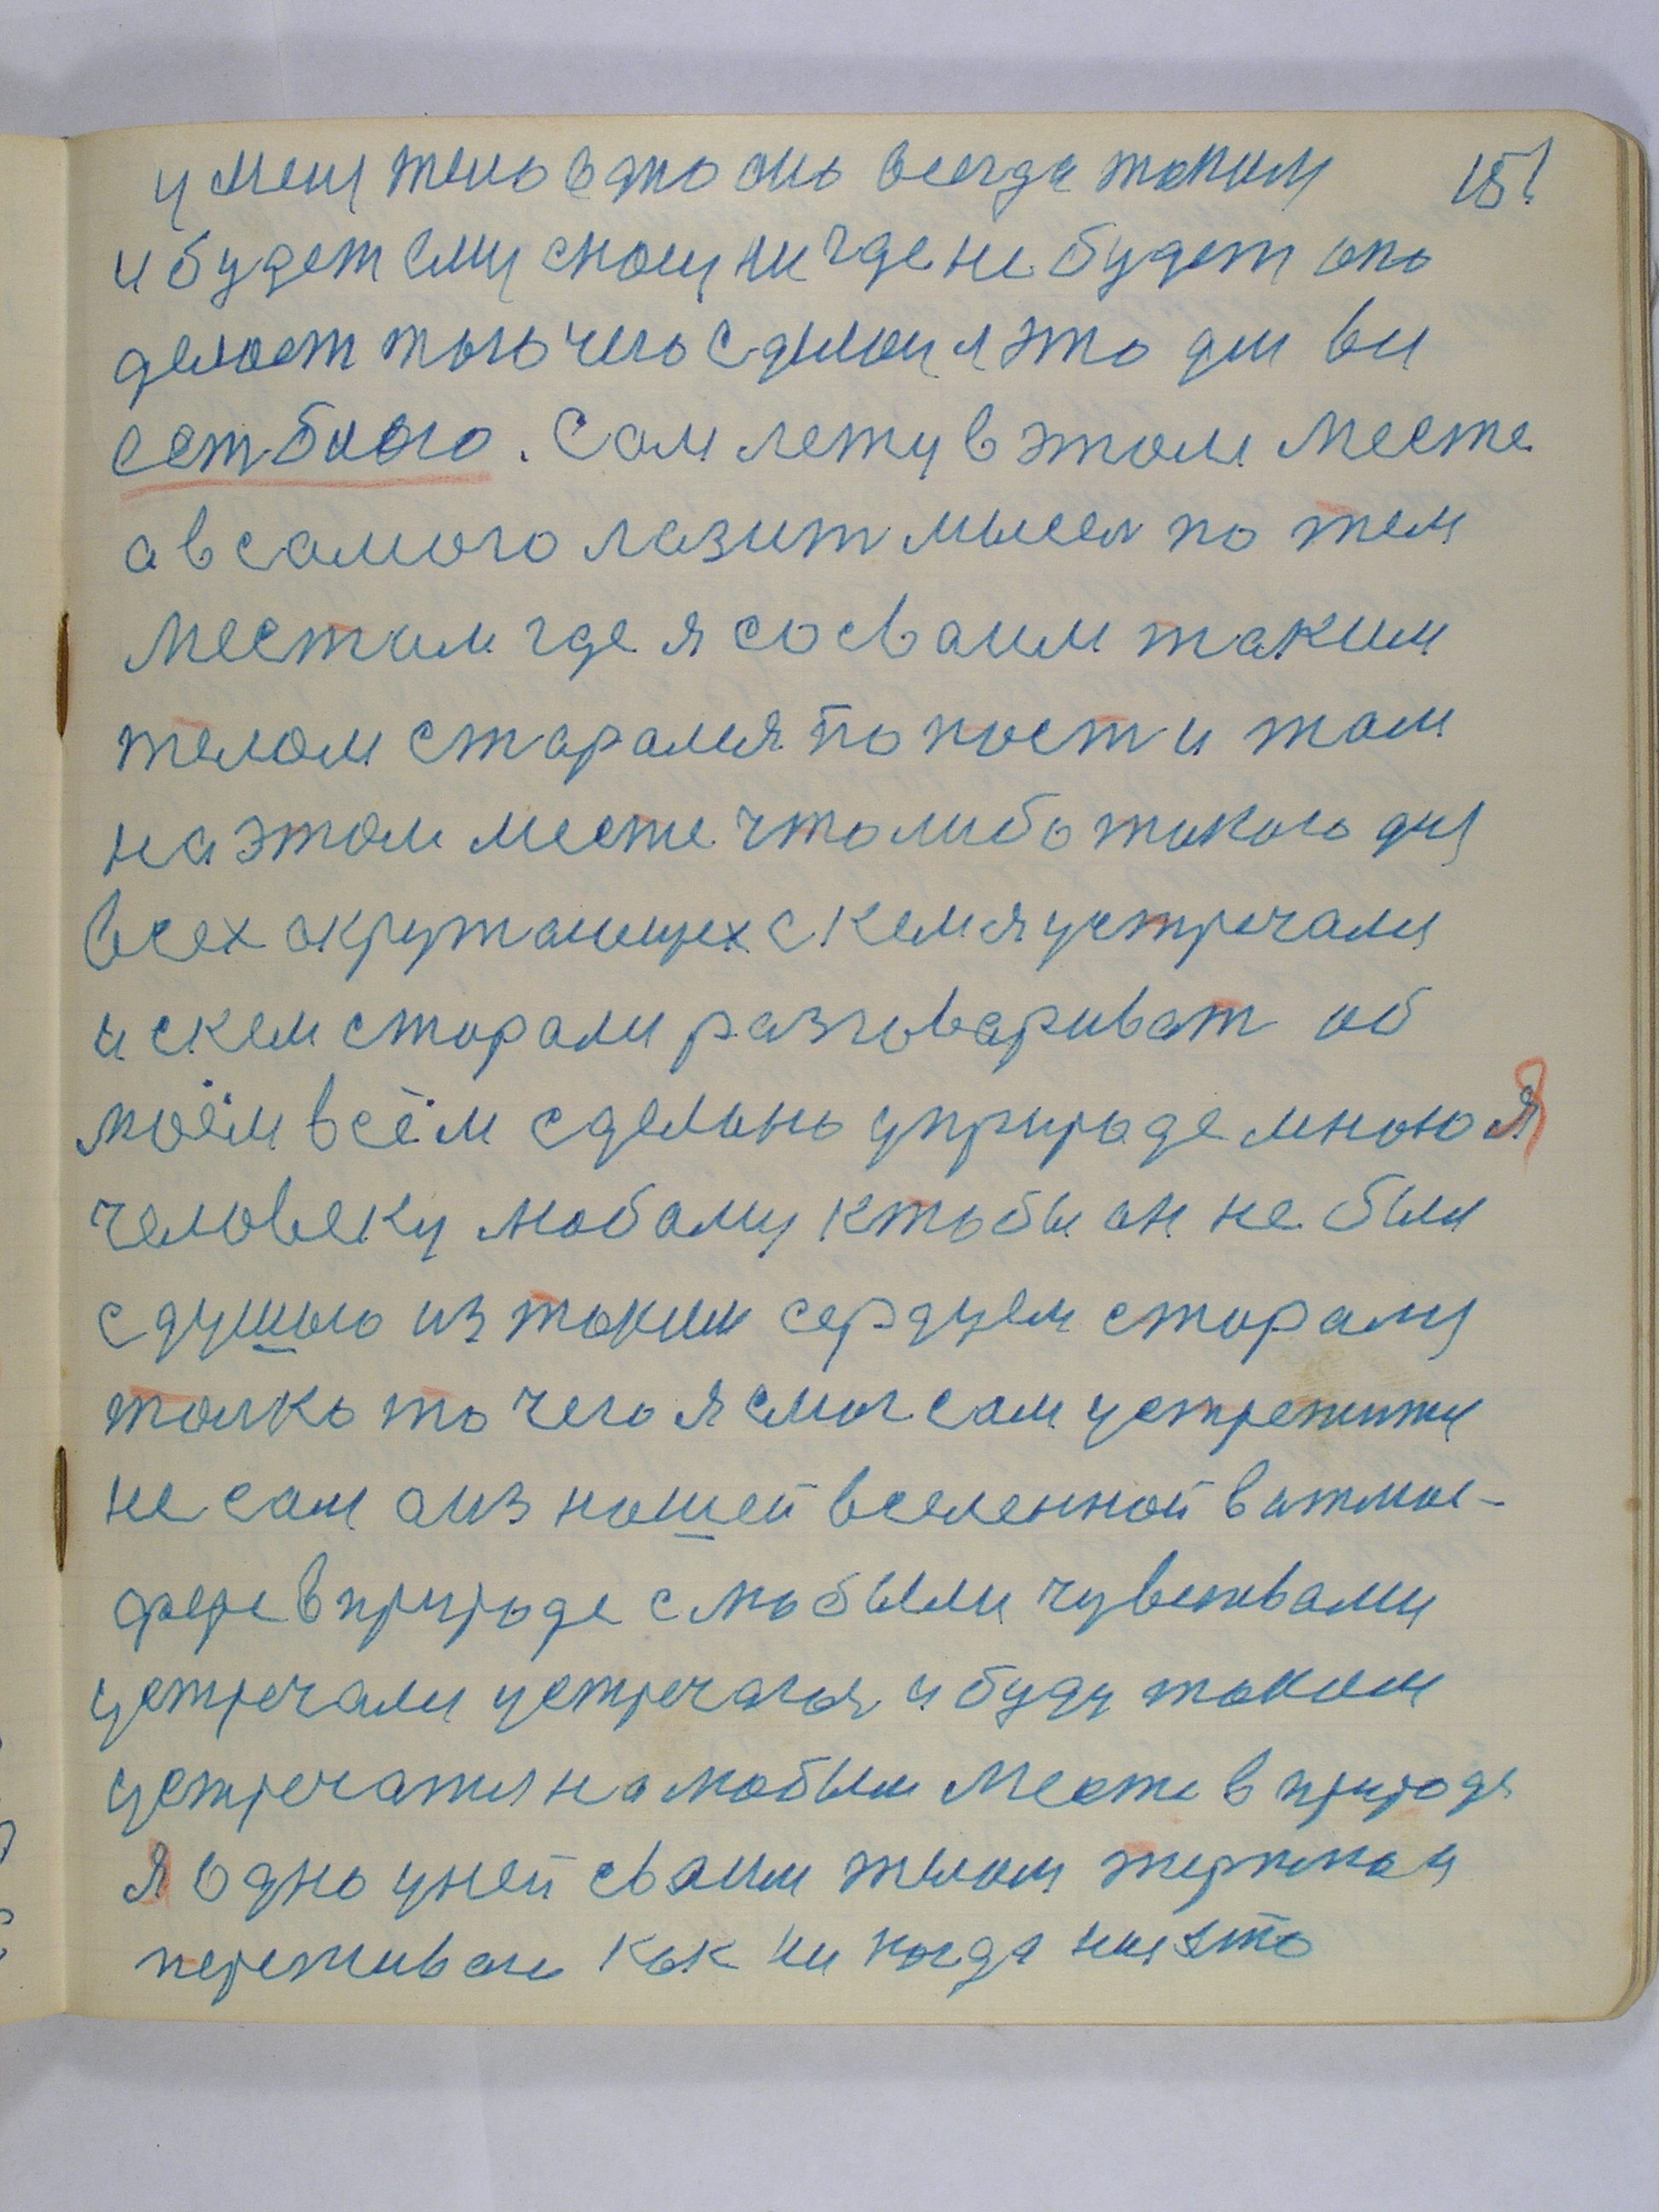 у меня тело ето оно всегда таким 151
и будет ему споку ни где не будет оно
делает того чего сделал я это для ви
сетбного. Сам лежу в этом месте
а в самого лазит мысел по тем
местам где я со сваим таким
телом старался попости и там
на этом месте что либо такого для
всех окружающих с кем я устречался
и с кем старался разговариват об
моём всём сделано у природе мною Я
человеку любому кто бы он не был
с душою из таким сердцем старался
толко то чего я смог сам устретитя
не сам а из нашей вселенной в атмос-
фере в природе с любыми чувствами
устречался устречаюся и буду таким
устречатися на любым месте в природе
Я одно у ней сваим телом терплю и
переживаю как ни когда никто